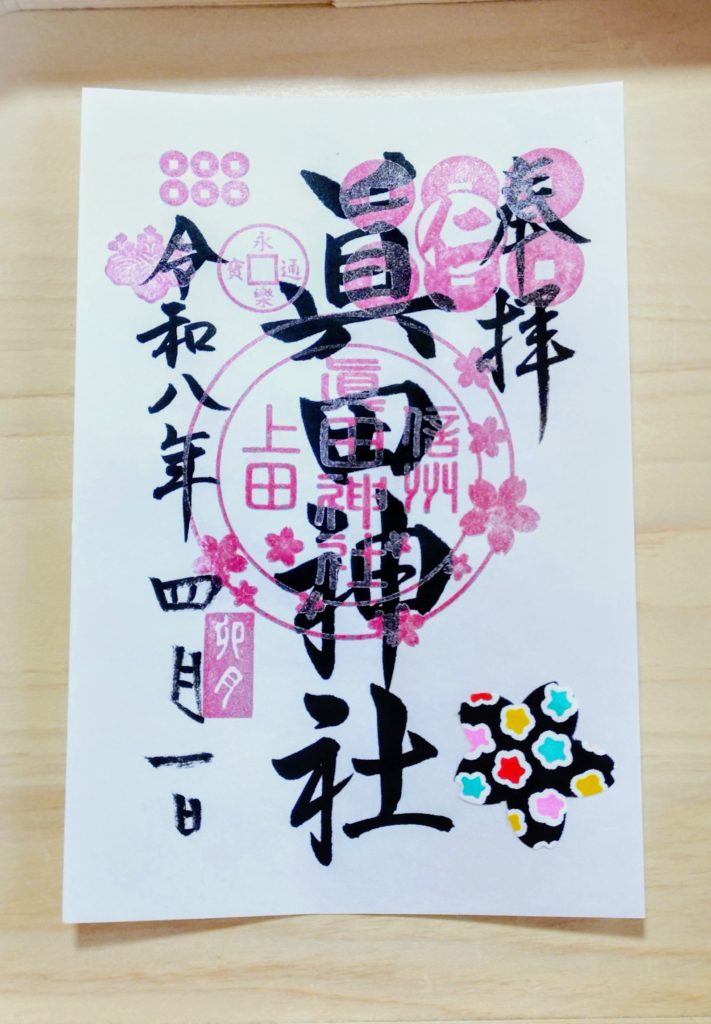 奉拝
眞田神社
令和八年四月一日
信州
眞田神社
上田
永樂通寳
卯月
仁